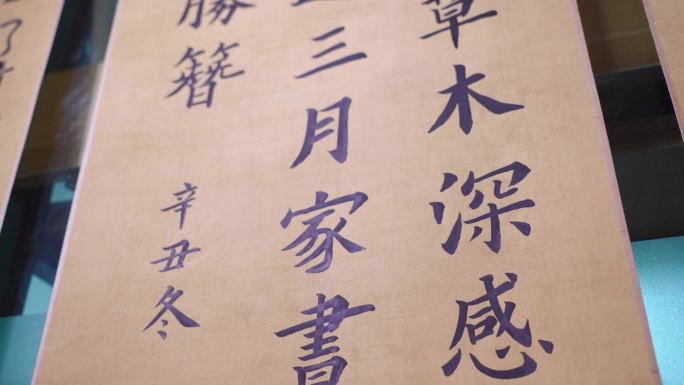 草木深感
三月家書
勝簪
辛丑冬